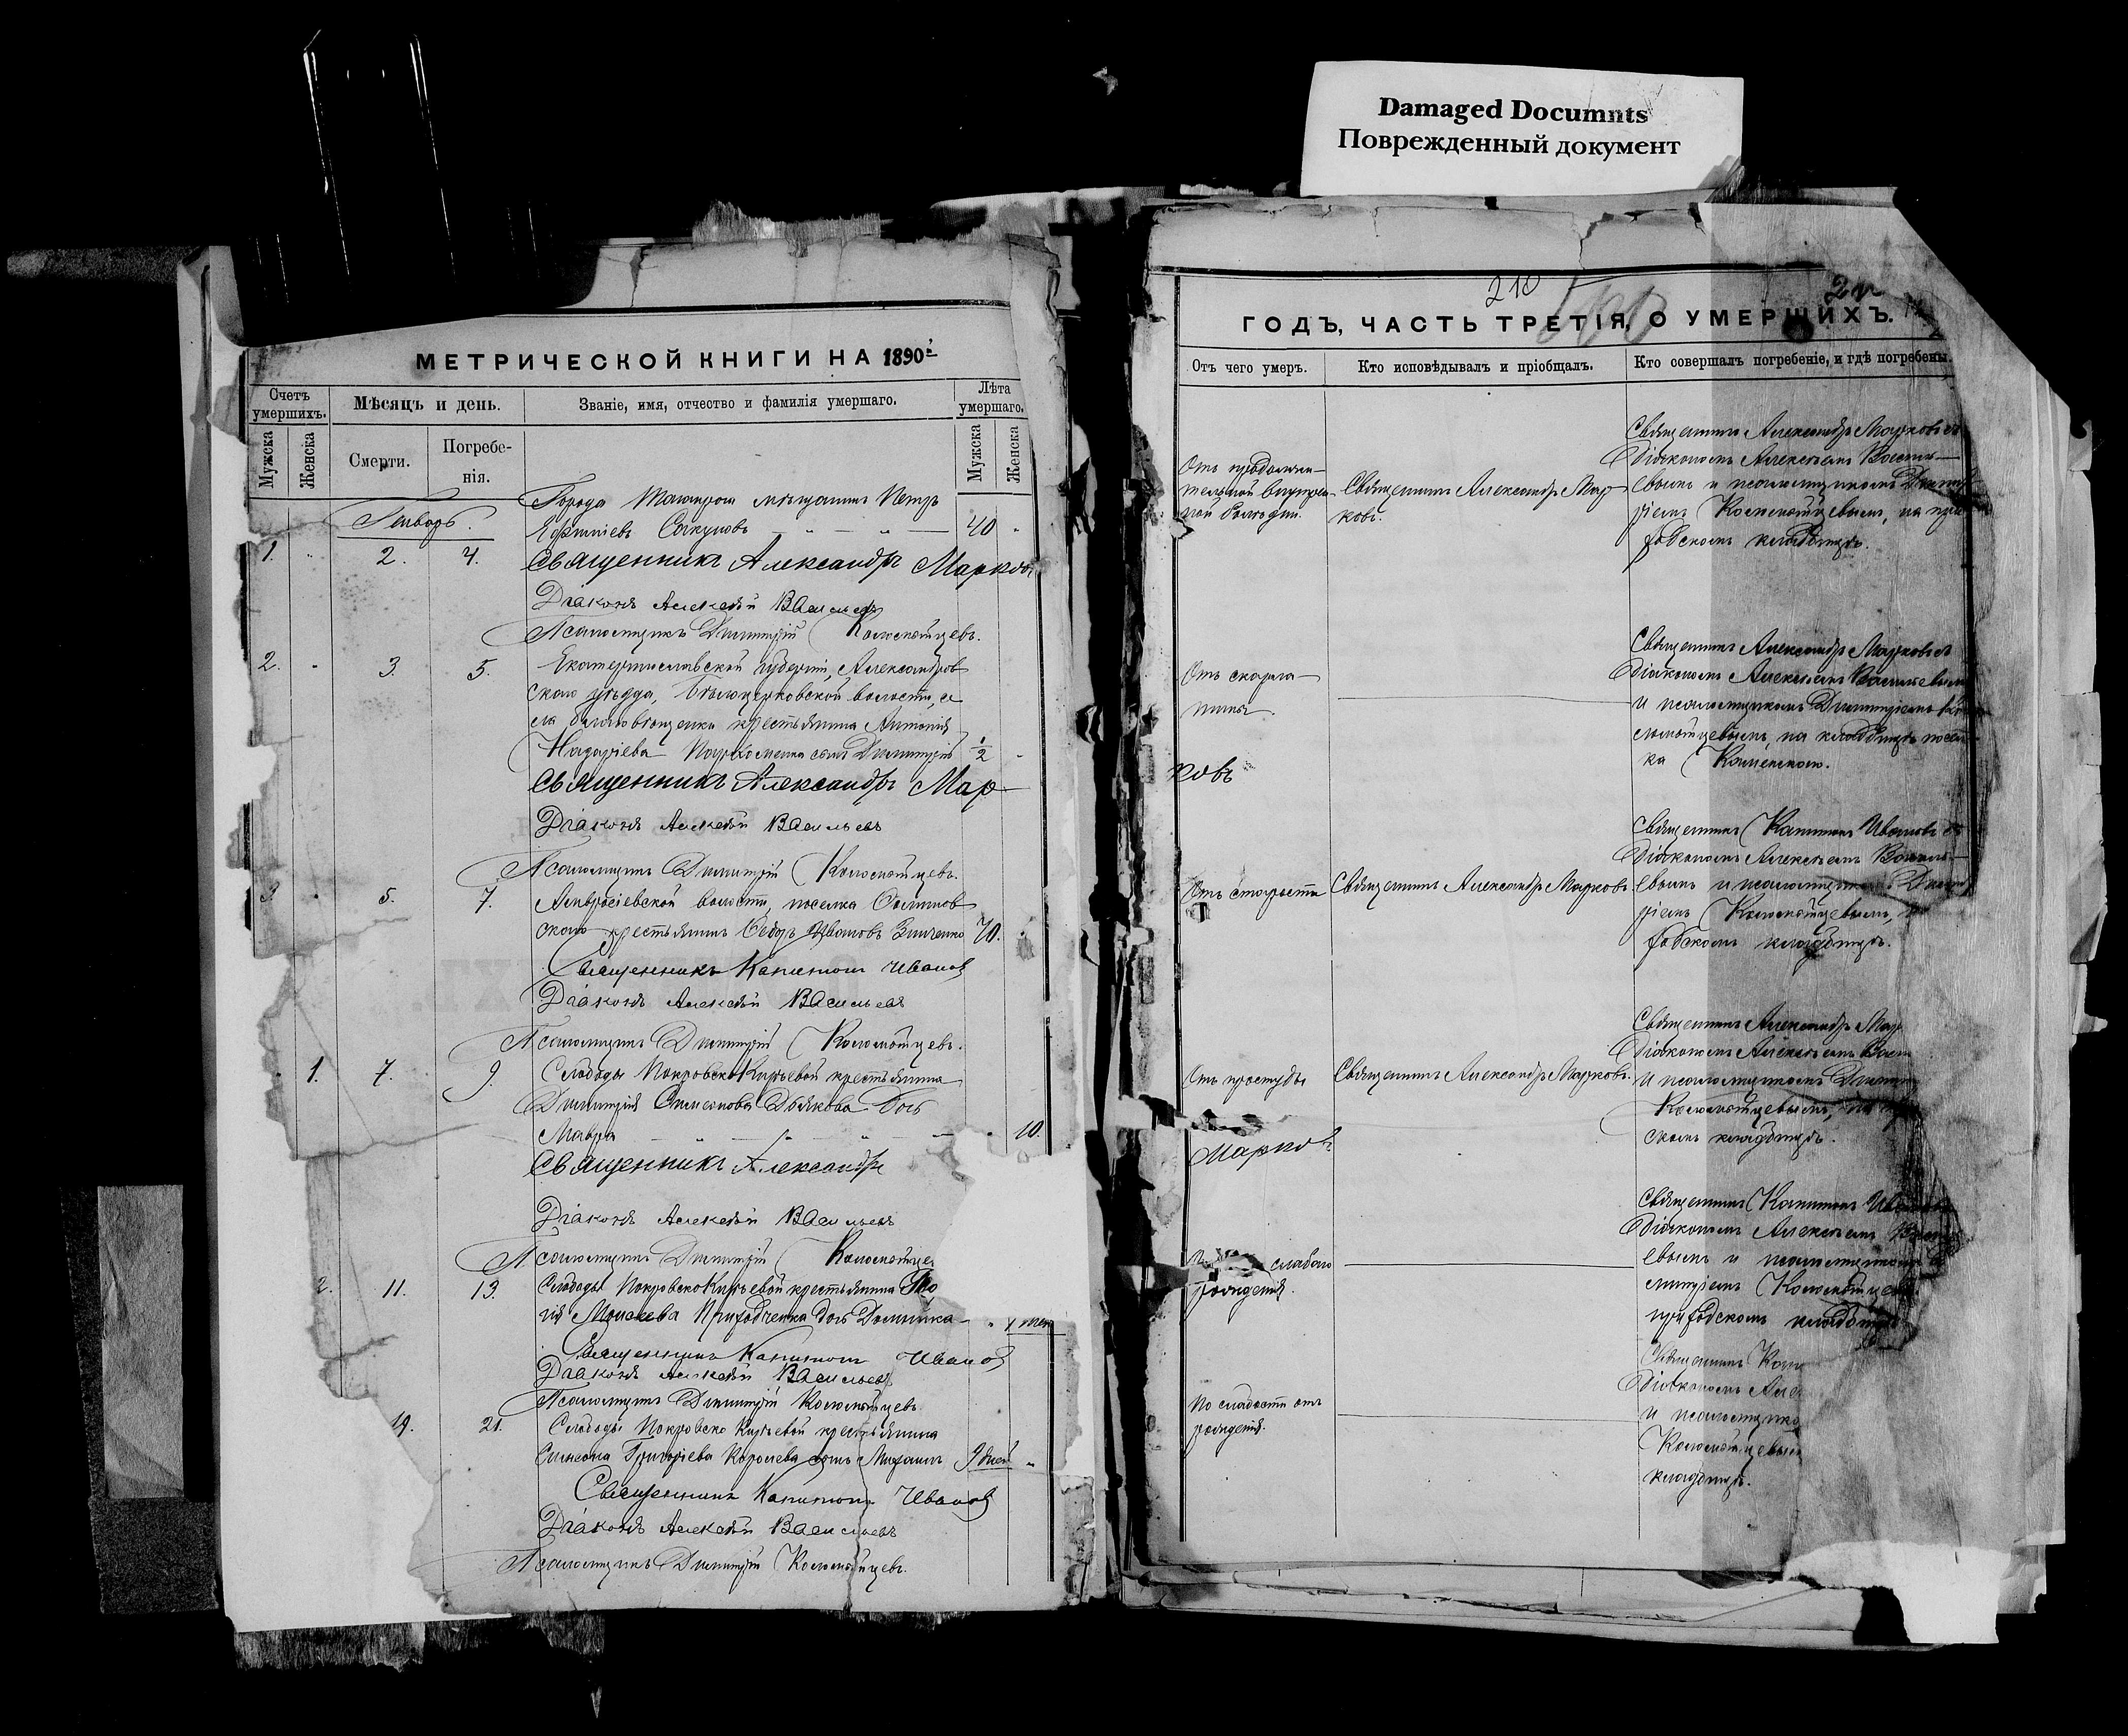 Damaged Documnts
Поврежденный документ
МЕТРИЧЕСКОЙ КНИГИ НА 1890
Счетъ умершихъ.
Мѣсяцъ и день.
Званіе, имя, отчество и фамилія умершаго.
Лѣта умершаго.
Мужска
Женска
Смерти.
Погребе-
нія.
Мужска
Женска
Январь.
Города Таганрога мѣщанинъ Петръ
40
1. 2. 4.
Священникъ Александръ Марковъ
Діаконъ Алексѣй Васильевъ
Псаломщикъ Димитрій Коломойцевъ.
2. 3. 5. Екатеринославской губерніи, Александров
скаго уѣзда, Бѣлоцерковской волости, се
ла крестьянина Антонія
сынъ Димитрій 1/2
Священникъ Александръ Мар-
Діаконъ Алексѣй Васильевъ
Псаломщикъ Димитрій Коломойцевъ.
3. 5. 7. Амвросіевской волости, поселка
скаго крестьянинъ Ивановъ Зинченко 70.
Священникъ Капитонъ Ивановъ
Діаконъ Алексѣй Васильевъ
Псаломщикъ Димитрій Коломойцевъ.
1. 7. 9. Слободы Покровско-Кирѣевой крестьянина
Димитрія Симеонова Дьякова дочь
Мавра 10.
Священникъ Александръ
Діаконъ Алексѣй Васильевъ
Псаломщикъ Димитрій Коломойце
2. 11. 13. Слободы Покровско Кирѣевой крестьянина
Моисеева Приходченка дочь Домника
Священникъ Капитонъ Ивановъ
Діаконъ Алексѣй Васильевъ
Псаломщикъ Димитрій Коломойцевъ
19. 21. Слободы Покровско Кирѣевой крестьянина
Симеона Григорьева Королева сынъ Михаилъ 9 дней
Священникъ Капитонъ Ивановъ
Діаконъ Алексѣй Васильевъ
Псаломщикъ Димитрій Коломойцевъ.
210
ГОДЪ, ЧАСТЬ ТРЕТІЯ, О УМЕРШИХЪ.
Отъ чего умеръ.
Кто исповѣдывалъ и пріобщалъ.
Кто совершалъ погребеніе, и гдѣ погребены.
Отъ продолжи-
тельной внутрен-
ной болѣзни.
Священникъ Александръ Мар
ковъ.
Священникъ Александръ Марковъ съ
Діакономъ Алексѣемъ Василь-
евымъ и псаломщикомъ Димит
ріемъ Коломойцевымъ, на при
ходскомъ кладбищѣ.
Отъ скарла-
тины.
Священникъ Александръ Марковъ съ
Діакономъ Алексѣемъ Васильевымъ
и псаломщикомъ Димитріемъ Ко
ломойцевымъ, на кладбищѣ посел
ка Каменскаго.
ковъ
Отъ старости
Священникъ Александръ Марковъ
Священникъ Капитонъ Ивановъ съ
Діакономъ Алексѣемъ Василь-
евымъ и псаломщикомъ Димит
ріемъ Коломойцевымъ,
ходскомъ кладбищѣ.
Отъ простуды
Священникъ Александръ Марковъ.
Священникъ Александръ Мар
Діакономъ Алексѣемъ Васи
и псаломщикомъ Димит
Коломойцевымъ, на
скомъ кладбищѣ.
Марковъ
слабаго
рожденія.
Священникъ Капитонъ Ивановъ
Діакономъ Алексѣемъ Василь
евымъ и псаломщикомъ
митріемъ Коломойцев
приходскомъ кладбищѣ
По слабости отъ
рожденія.
Священникъ Капи
Діакономъ Але
и псаломщико
Коломойцевым
кладбищѣ.